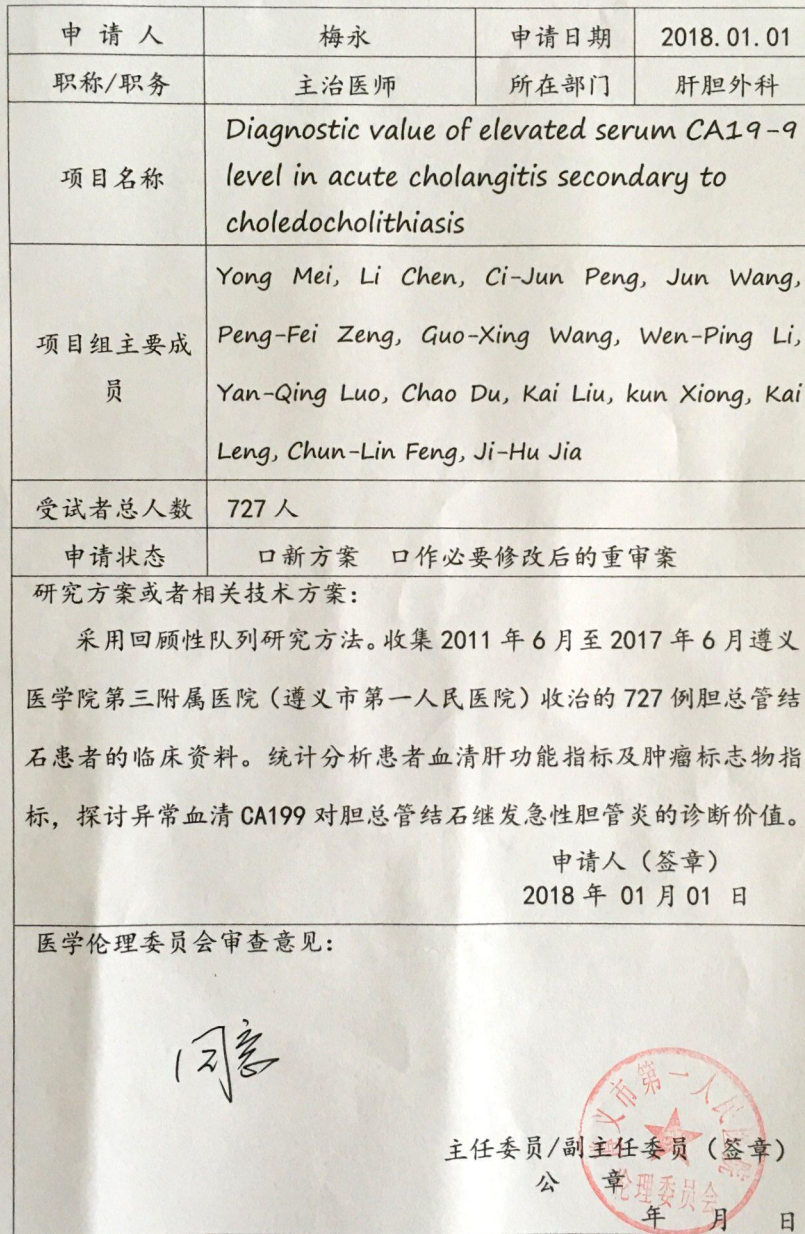 申请人 梅永 申请日期 2018.01.01
职称/职务 主治医师 所在部门 肝胆外科
项目名称
Diagnostic value of elevated serum CA19-9
level in acute cholangitis secondary to
choledocholithiasis
项目组主要成
员
Yong Mei, Li Chen, Ci-Jun Peng, Jun Wang,
Peng-Fei Zeng, Guo-Xing Wang, Wen-Ping Li,
Yan-Qing Luo, Chao Du, Kai Liu, kun Xiong, Kai
Leng, Chun-Lin Feng, Ji-Hu Jia
受试者总人数 727人
申请状态 口新方案 口作必要修改后的重审案
研究方案或者相关技术方案：
采用回顾性队列研究方法。收集2011年6月至2017年6月遵义
医学院第三附属医院（遵义市第一人民医院）收治的727例胆总管结
石患者的临床资料。统计分析患者血清肝功能指标及肿瘤标志物指
标，探讨异常血清CA199对胆总管结石继发急性胆管炎的诊断价值。
申请人（签章）
2018年 01月01 日
医学伦理委员会审查意见：
同意
遵义市第一人民医院
伦理委员会
主任委员/副主任委员（签章）
公 章
年 月 日